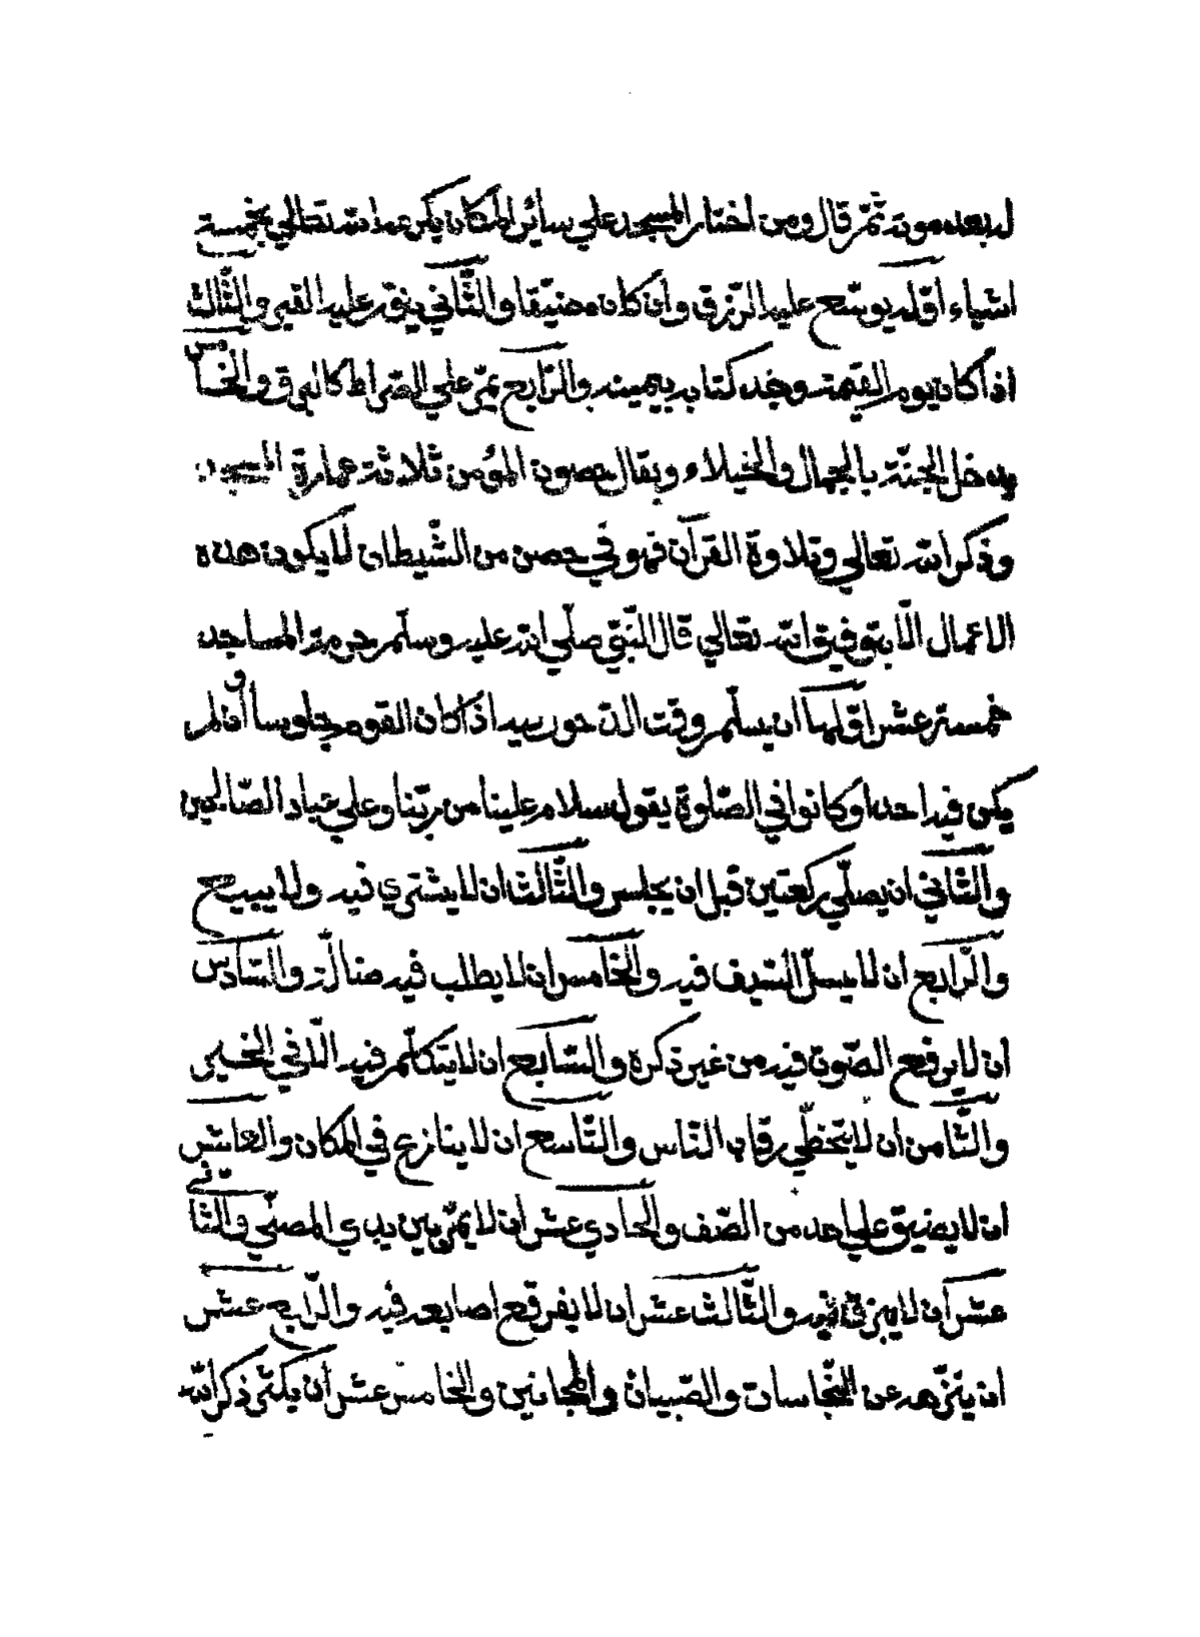 له بعد موته ثمّ قال ومن اختار المسجد على سائر المكان يكن عند الله تعالي بخمسة
اشياء اوّله يوسّع عليه الرّزق وان كان مضيّقا والثّاني ينوّر عليه القبر والثّالث
اذا كان يوم القيمة وجد كتابه بيمينه والرّابع يمرّ علي الصّراط كالبرق والخامس
يدخل الجنّة بالجمال والخيلاء ويقال حصون المؤمن ثلاثة عمارة المسجد
وذكر الله تعالي وتلاوة القرآن فهو في حصن من الشّيطان لا يكون هذه
الاعمال الّا بتوفيق الله تعالي قال النّبيّ صلّي الله عليه وسلّم حرمة المساجد
خمسة عشر اوّلها ان يسلّم وقت الدّخول فيه اذا كان القوم جلوسا وان لم
يكن فيه احد او كانوا في الصّلوة يقول سلام علينا من ربّنا وعلي عباد الصّالحين
والثّاني ان يصلّي ركعتين قبل ان يجلس والثّالث ان لا يشتري فيه ولا يبيع
والرّابع ان لا يسلّ السّيف فيه والخامس ان لا يطلب فيه ضالّة والسّادس
ان لا يرفع الصّوت فيه من غير ذكره والسّابع ان لا يتكلّم فيه الّا في الخير
والثّامن ان لا يتخطّي رقاب النّاس والتّاسع ان لا ينازع في المكان والعاشر
ان لا يضيق علي احد من الصّف والحادي عشر ان لا يمرّ بين يدي المصلّي والثّاني
عشر ان لا يبزق فيه والثّالث عشر ان لا يفرقع اصابعه فيه والرّابع عشر
ان ينزّهه عن النّجاسات والصّبيان والمجانين والخامس عشر ان يكثر ذكر الله